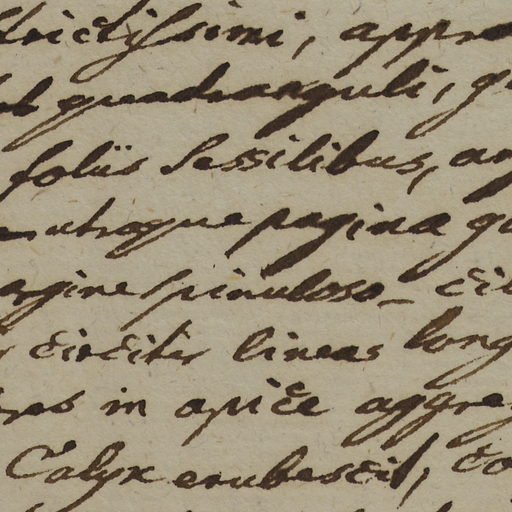 strictissimi, appre
quadranguli, q
foliis sessilibus, an
utraque pagina g
argine spinuloso_ cil
circiter lineas long
in apice aggre
Calyx erubescit, co